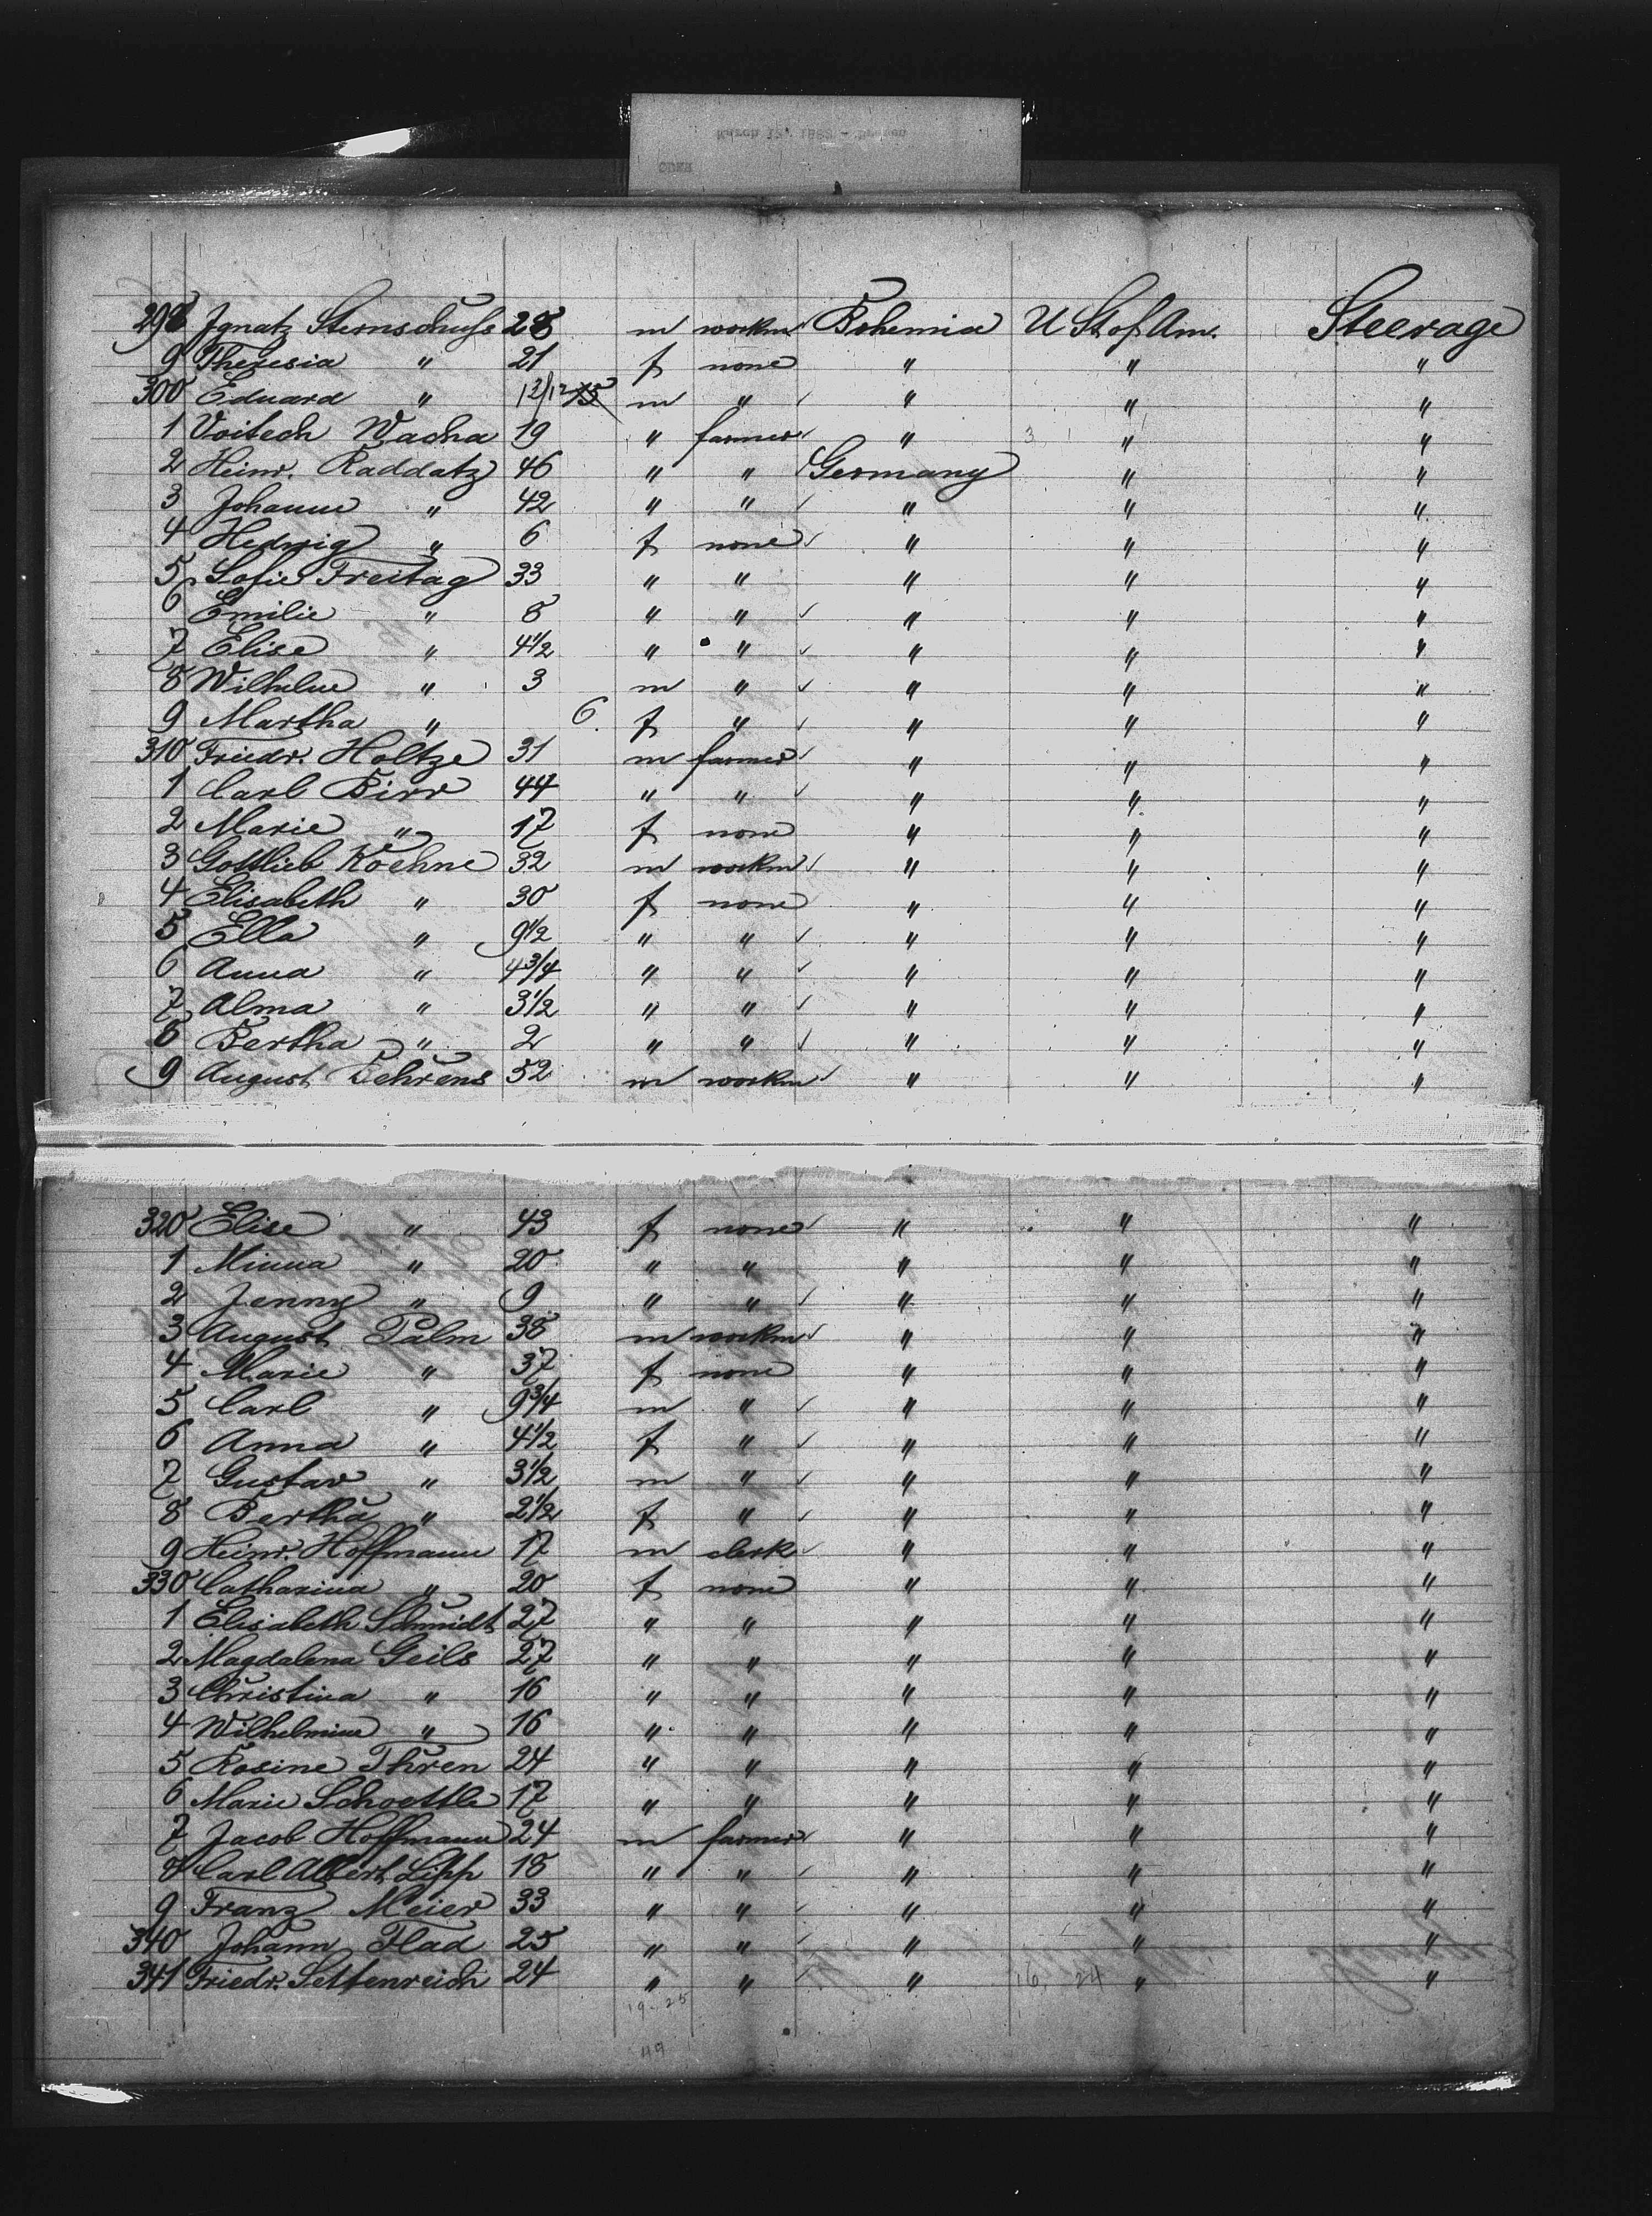 March 12, 1883 - Bremen
ODER
298 Ignatz Sternschuss 28 m workm Bohemia U St of Am. Steerage
9 Theresia " 21 f none " " "
300 Eduard " m " " " "
1 Voitech Wacha 19 " farmer " " "
2 Heinr. Raddatz 46 " " Germany " "
3 Johann " 42 " " " " "
4 Hedwig " 6 f none " " "
5 Sofie Freitag 33 " " " " "
6 Emilie " 8 " " " " "
7 Elise " 4 1/2 " " " " "
8 Wilhelm " 3 m " " " "
9 Martha " 6 f " " " "
310 Friedr. Holtze 31 m farmer " " "
1 Carl Birr 44 " " " " "
2 Marie " 17 f none " " "
3 Gottlieb Koehne 32 m workm " " "
4 Elisabeth " 30 f none " " "
5 Ella " 9 1/2 " " " " "
6 Anna " 4 3/4 " " " " "
7 Alma " 3 1/2 " " " " "
8 Bertha " 2 " " " " "
9 August Behrens 52 m workm " " "
320 Elise " 43 f none " " "
1 Minna " 20 " " " " "
2 Jenny " 9 " " " " "
3 August Palm 38 m workm " " "
4 Marie " 37 f none " " "
5 Carl " 9 3/4 m " " " "
6 Anna " 4 1/2 f " " " "
7 Gustav " 3 1/2 m " " " "
8 Bertha " 2 1/2 f " " " "
9 Heinr. Hoffmann 17 m clerk " " "
330 Catharina " 20 f none " " "
1 Elisabeth Schmidt 27 " " " " "
2 Magdalena Geils 27 " " " " "
3 Christina " 16 " " " " "
4 Wilhelmine " 16 " " " " "
5 Rosine Thren 24 " " " " "
6 Marie Schoettle 17 " " " " "
7 Jacob Hoffmann 24 m farmer " " "
8 Carl Albert Lipp 18 " " " " "
9 Franz Meier 33 " " " " "
340 Johann Flad 25 " " " " "
341 Friedr. Settenreich 24 " " " " "
19-25
49